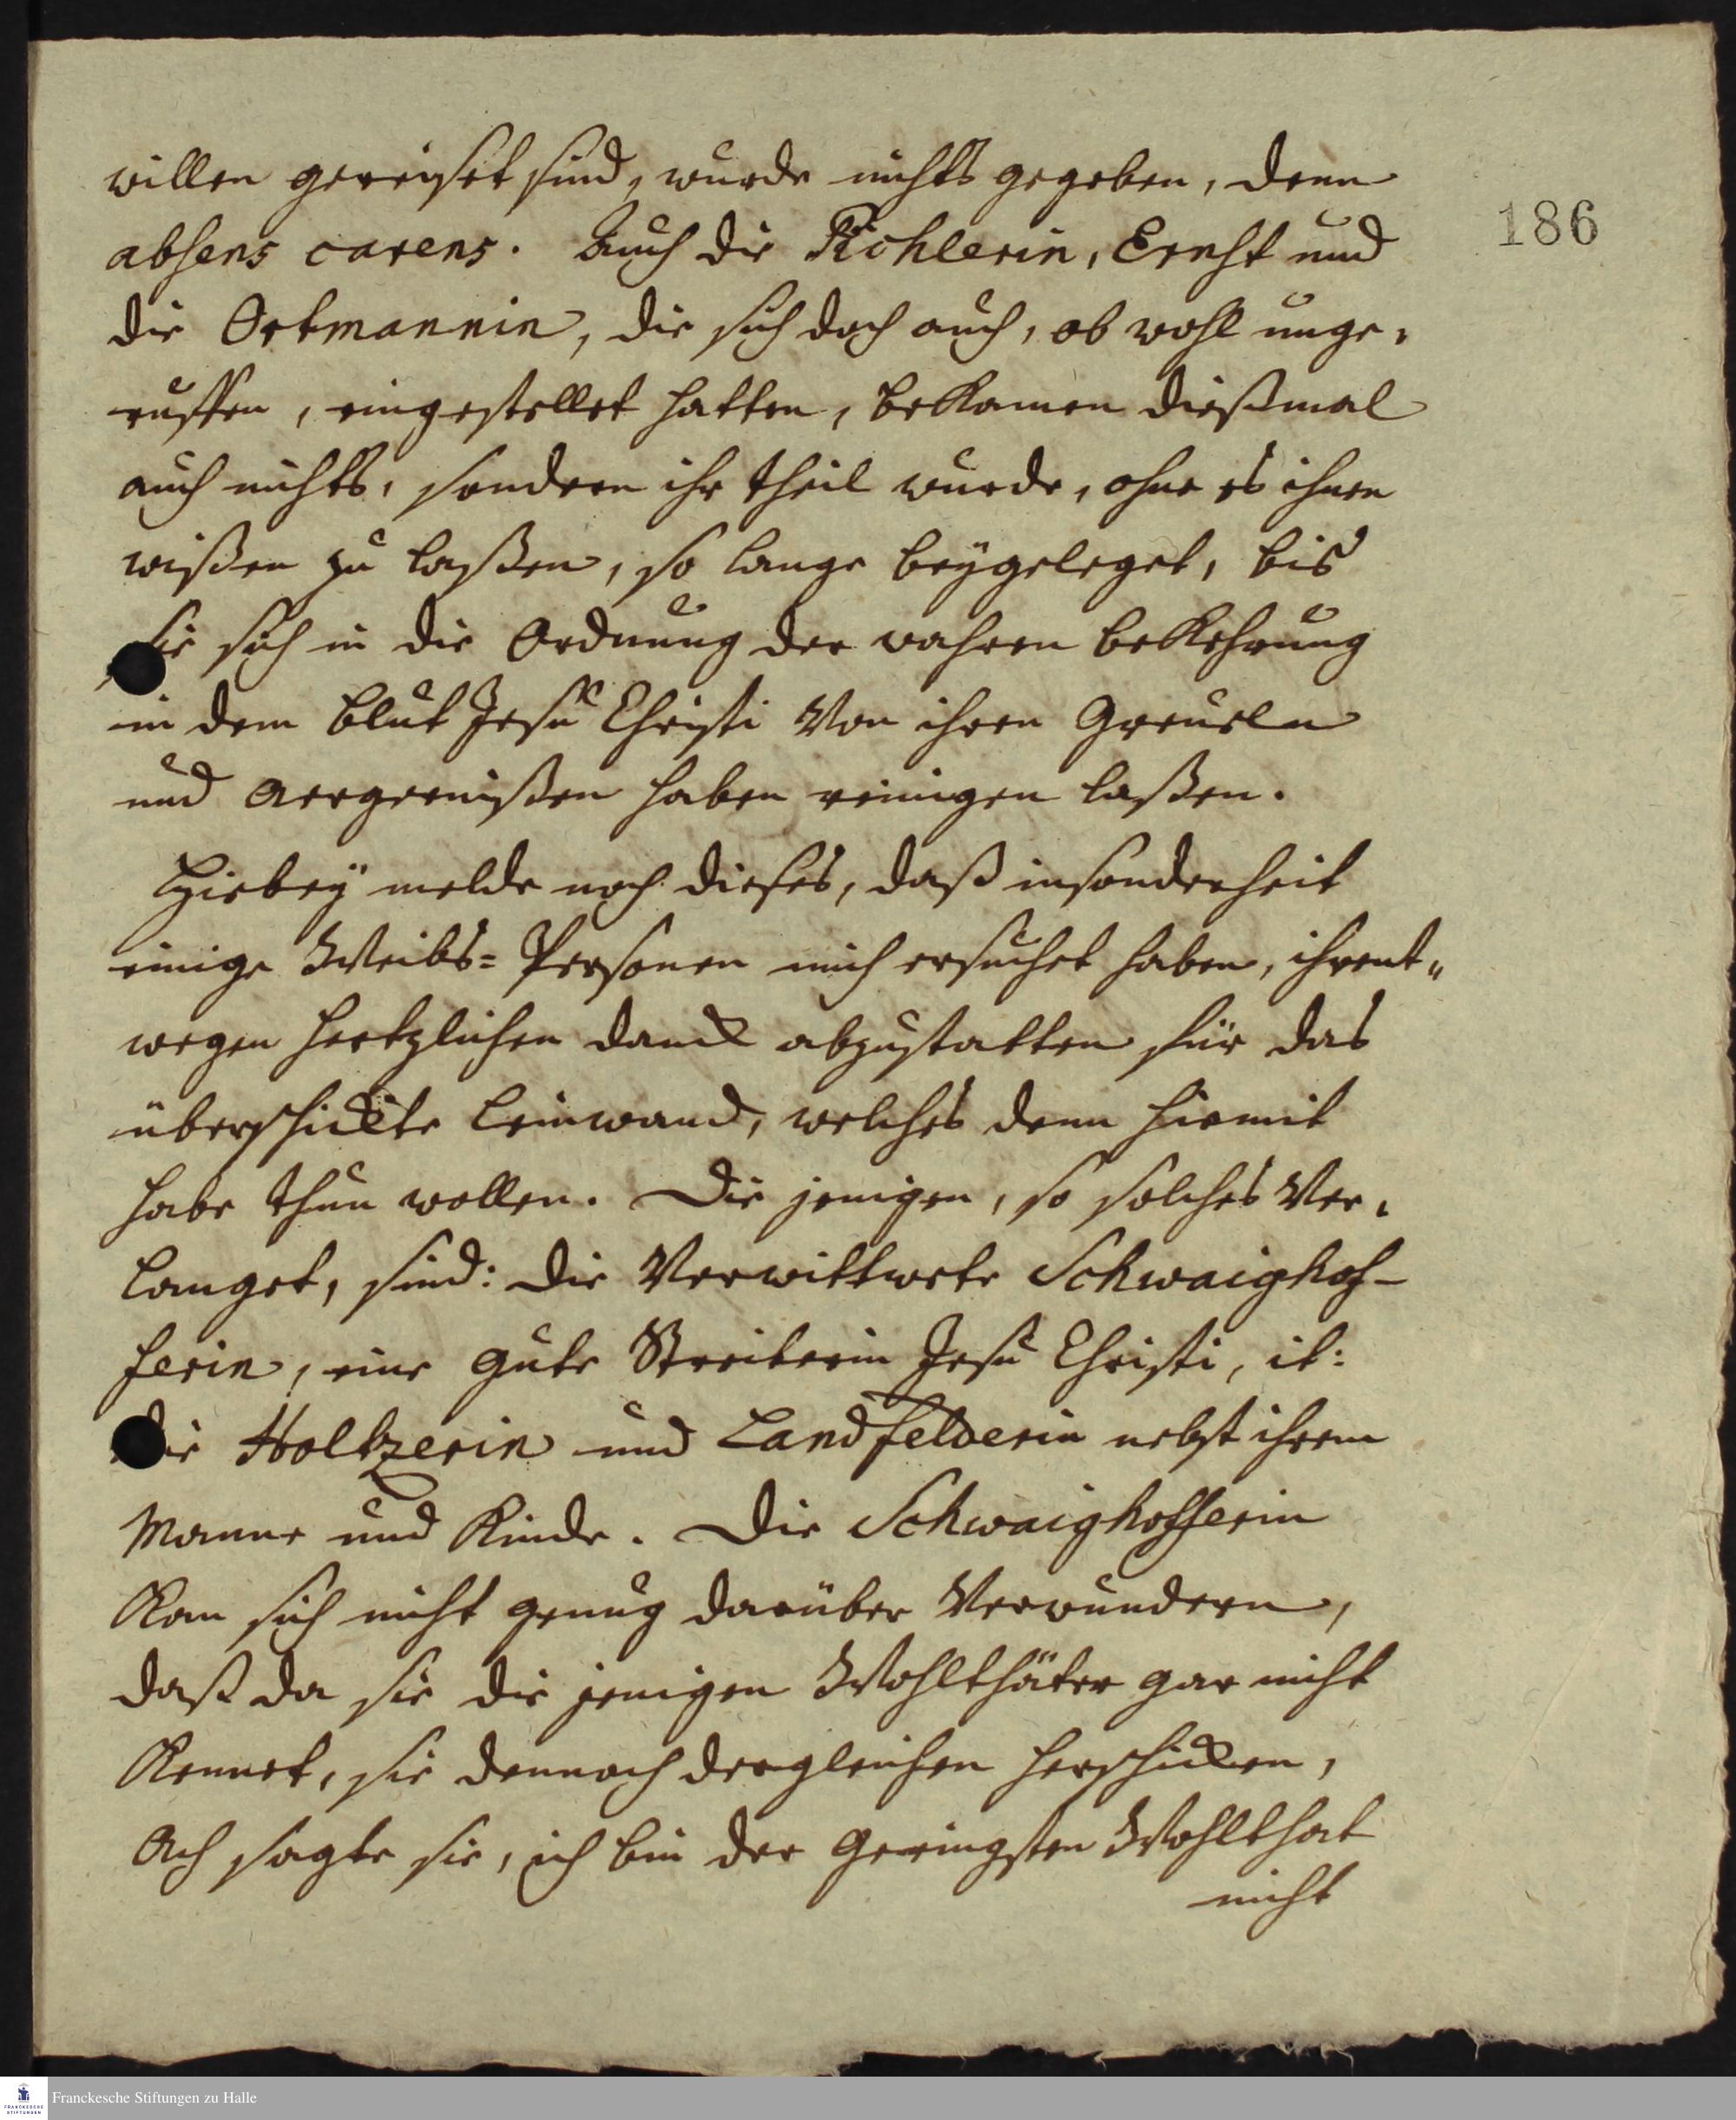 willen gereiset sind, wurde nichts gegeben, denn
absens carens. Auch die Richlerin, Ernst und
186
die Ortmannin, die sich doch auch, ob wohl unge-
ruffen, eingestellet hatten, bekamen dießmal
auch nichts, sondern ihr theil wurde, ohne es ihnen
wißen zu laßen, so lange beygeleget, bis
sie sich in die Ordnung der wahren bekehrung
in dem blut Jesu Christi von ihren Greueln
und Aergernißen haben reinigen laßen.
Hiebey melde noch dieses, daß insonderheit
einige Weibs=Personen mich ersuchet haben, ihrent„
wegen hertzlichen danck abzustatten für das
überschickte Leinwand, welches denn hiemit
habe thun wollen. Die jenigen, so solches ver-
langet, sind: die Verwittwete Schwaighof-
ferin, eine gute Streiterin Jesu Christi, it:
die Holtzerin und Landfelderin nebst ihrem
Manne und Kinde. Die Schwaighofferin
kan sich nicht genug darüber verwundern,
daß da sie die jenigen Wohlthäter gar nicht
kennet, sie dennoch dergleichen herschicken,
Ach sagte sie, ich bin der geringsten Wohlthat
nicht
Franckesche Stiftungen zu Halle
FRANCKESCHE
STIFTUNGEN